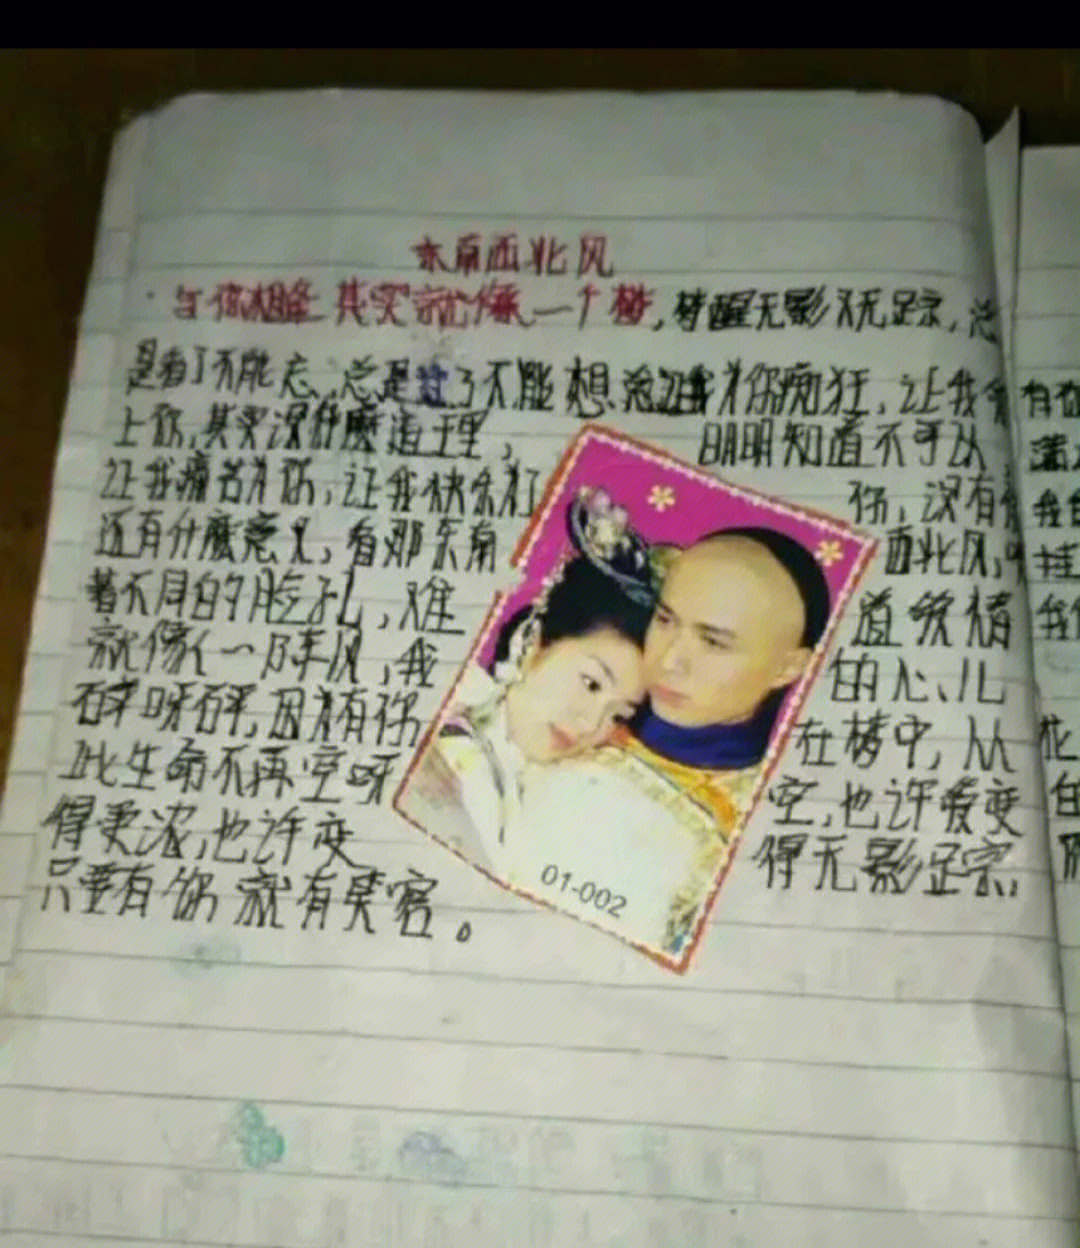 东南西北风
与你相逢其实就像一个梦,梦醒无影又无踪,总
是看了不能忘,总是过了不能想,总让我为你痴狂,让我爱
上你,其实没什麽道理,明明知道不可以
让我痛苦为你,让我快乐为了你,没有
还有什麽意义,看那东南西北风,
着不同的脸孔,难道纯情
就像一阵风,我的心儿
砰呀砰,因为有你在梦中,从
此生命不再空呀空,也许爱变
得柔浓,也许变得无影足宗,
只要有你就有笑容。
01-002
有
我
挂
我
花